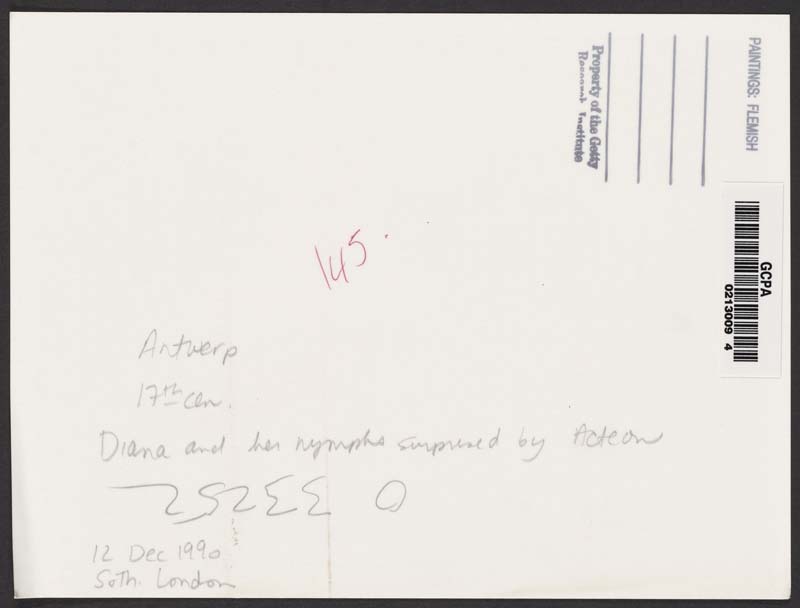 PAINTINGS: FLEMISH
Property of the Getty
Research Institute
GCPA
0213009 4
145.
Antwerp
17th cen.
Diana and her nymphs surprised by Acteon
12 Dec 1990
Soth. London